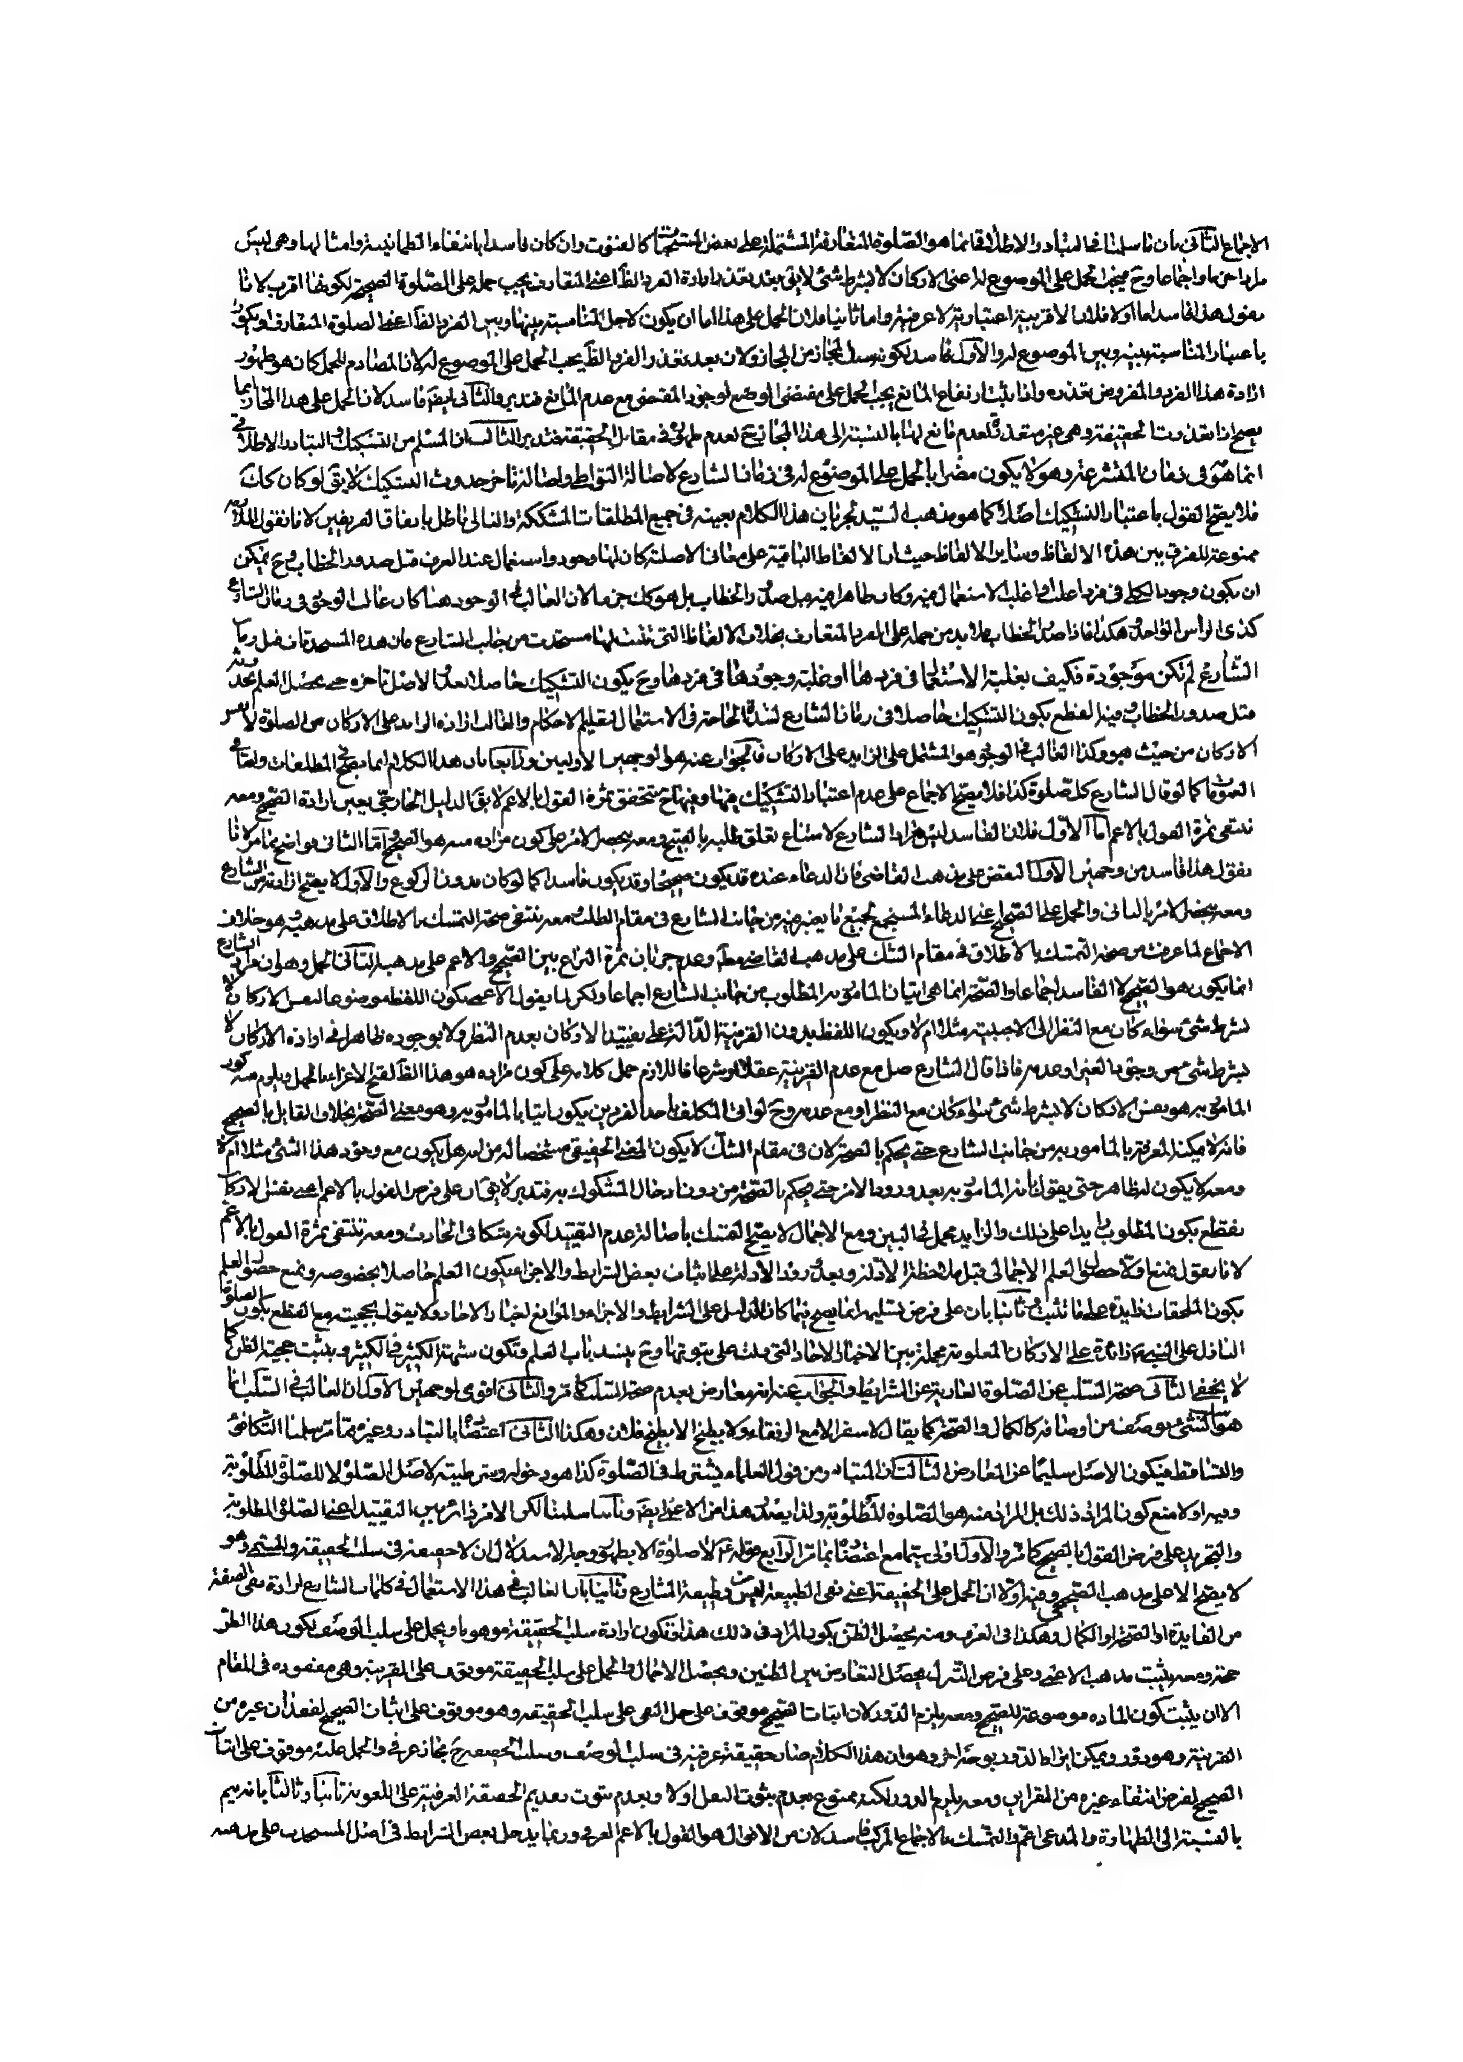 الاجماع الثاني بان ما سلمنا في التبادر الاطلاقي انما هو الصلوة المتعارفة المشتملة على بعض المستحبات كالقنوت وان كان فاسدا بانتفاء الطمانينة وامثالها وهى ليس
مرادا جزما واجماعا وح فيجب الحمل على الموضوع له اعنى الاركان لا بشرط شئ لا يقال بعد تعذر ارادة الفرد الظاهر اعنى المتعارف يجب حمله على الصلوة الصحيحة لكونها اقرب لانا
نقول هذا فاسد اما اولا فلان الاقربية اعتبارية لا عرفية واما ثانيا فلان الحمل على هذا اما ان يكون لاجل المناسبة بينها وبين الفرد الظاهر اعنى الصلوة المتعارفة او يكون
باعتبار المناسبة بينه وبين الموضوع له والاول فاسد لكونه سبك المجاز من المجاز ولان بعد تعذر الفرد الظاهر يجب الحمل على الموضوع له لان المصادم للحمل كان هو ظهور
ارادة هذا الفرد والمفروض تعذره واذا ثبت ارتفاع المانع يجب الحمل على مقتضى الوضع لوجود المقتضى مع عدم المانع فتدبر والثانى ايضا فاسد لان الحمل على هذا المجاز انما
يصح اذا تعذرت الحقيقة وهى غير متعذرة لعدم مانع لها بالنسبة الى هذا المجاز ح لعدم ظهوره فى مقابل الحقيقة فتدبر الثالث ان المسلم من التشكيك والتبادر الاطلاقى
انما هو فى زمان المتشرعة وهو لا يكون مضرا بالحمل على الموضوع له فى زمان الشارع لاصالة التواطى واصالة تاخر حدوث التشكيك لا يقال لو كان كك
فلا يصح القول باعتبار التشكيك اصلا كما هو مذهب السيد لجريان هذا الكلام بعينه فى جميع المطلقات المشككة والتالى باطل باتفاق الفريقين لانا نقول الملازمة
ممنوعة للفرق بين هذه الالفاظ وساير الالفاظ حيث ان الالفاظ الباقية على معانى الاصلية كان لها وجود واستعمال عند العرف قبل صدور الخطاب وح يمكن
ان يكون وجود الكلى فى فرد اغلب واغلب الاستعمال فيه وكان ظاهرا فيه قبل صدور الخطاب بل هو كك جزما لان الغالب فى الوجود هنا كان غالب الوجود فى زمان الشارع
كذى الراس الواحد وهكذا فاذا صدر الخطاب فلا بد من حمله على الفرد المتعارف بخلاف الالفاظ التى تثبت لها مستحدث من جانب الشارع فان هذه المستحدثات قبل زمان
الشارع لم تكن موجودة فكيف بغلبة الاستعمال فى فردها او غلبة وجودها فى فردها وح يكون التشكيك حاصلا بعد والاصل تاخره حتى يحصل العلم بحدوثه
قبل صدور الخطاب وفيه القطع بكون التشكيك حاصلا فى زمان الشارع لشدة الحاجة فى الاستعمال لتعليم الاحكام والغالب ارادة الزايد على الاركان من الصلوة لا نفس
الاركان من حيث هو وكذا الغالب فى الوجود هو المشتمل على الزايد على الاركان فالجواب عنه هو الوجهين الاولين ورابعا بان هذا الكلام انما يصح فى المطلقات واما فى
العمومات كما لو قال الشارع كل صلوة كذا فلا يصح الاجماع على عدم اعتبار التشكيك فيها وفيها ح تتحقق ثمرة القول بالاعم لا يقال الدليل الخارجى يعين ارادة الصحيح ومعه
تنتفى ثمرة القول بالاعم اما الاول فلان الفاسد ليس مراد الشارع لامتناع تعلق طلبه بالقبيح ومعه يحصل الامر على كون مراده منه هو الصحيح واما الثانى فواضح مما مر لانا
نقول هذا فاسد من وجهين الاول النقض على مذهب القاضى فان الدعاء عنده قد يكون صحيحا وقد يكون فاسدا كما لو كان بدون الركوع والاول لا يصح ارادته من الشارع
ومعه يحصل الامر بالثانى والحمل على الصحيح اعنى الدعاء المستجمع لجميع ما يعتبر فيه من جانب الشارع فى مقام الطلب ومعه تنتفى صحة التمسك بالاطلاق على مذهبه وهو خلاف
الاجماع لما عرفت من صحة التمسك بالاطلاق فى مقام الشك على مذهب القاضى مطلقا وعدم جريان ثمرة النزاع بين الصحيح والاعم على مذهبه الثانى الحل وهو ان مراد الشارع
انما يكون هو الصحيح لا الفاسد اجماعا والصحة انما هى اتيان المامور به المطلوب من جانب الشارع اجماعا ولكن لما يقول الاعمى بكون اللفظ موضوعا لنفس الاركان لا
بشرط شئ سواء كان مع النظر الى الاجنبية مثلا ام لا ويكون اللفظ بدون القرينة الدالة على تقييد الاركان بعدم النظر ولا بوجوده ظاهرا فى ارادة الاركان لا
بشرط شئ من وجود الغير وعدمه فاذا قال الشارع صل مع عدم القرينة عقلا او شرعا فاللازم حمل كلامه على كون مراده هو هذا الظاهر لقبح الاغراء بالجهل ويلزمه كون
المامور به هو نفس الاركان لا بشرط شئ سواء كان مع النظر او مع عدمه وح لو اتى المكلف باحد الفردين يكون اتيا بالمامور به وهو معنى الصحة بخلاف القايل بالصحيح
فانه لا يمكنه المعرفة بالمامور به من جانب الشارع حتى يحكم بالصحة لان فى مقام الشك لا يكون المعنى الحقيقى مشخصا له من انه هل يكون مع وجود هذا الشئ مثلا ام لا
ومعه لا يكون له ظاهر حتى يقول انه المامور به بعد ورود الامر حتى يحكم بالصحة من دون ادخال المشكوك به فتدبر لا يقال على فرض القول بالاعم اعنى نفس الاركان
نقطع بكون المطلوب زايدا على ذلك والزايد مجمل فى البين ومع الاجمال لا يصح التمسك باصالة عدم التقييد لكونه شكا فى الحادث ومعه تنتفى ثمرة القول بالاعم
لانا نقول نمنع اولا حصول العلم الاجمالى قبل ملاحظة الادلة وبعد ورود الادلة على اثبات بعض الشرايط والاجزاء يكون العلم حاصلا بخصوصه ونمنع حصول العلم
بكون الملحقات زايدة على ما ثبت وثانيا بان على فرض تسليمه انما يصح فيما كان الدليل على الشرايط والاجزاء والموانع اخبار الاحاد ولا يقول بحجيته مع القطع بكون الصلوة
النازل على النبى ص زائدة على الاركان المعلومة مجملة بين الاخبار الاحاد التى دلت على ثبوتها وح ينسد باب العلم وتكون شبهة الكثير فى الكثير ويثبت حجية الظن كما
لا يخفى الثانى صحة السلب عن الصلوة العارية عن الشرايط والجواب عنه انه معارض بعدم صحة السلب كما مر والثانى اقوى لوجهين الاول ان الغالب فى السلب انما
هو الشئ بوصف من اوصافه كالكمال والصحة كما يقال لا سفر الا مع الرفقاء ولا بطيخ الا بطيخ فلان وهكذا الثانى اعتضاده بالتبادر وغيره مما مر سلمنا التكافؤ
والتساقط فيكون الاصل سليما عن المعارض الثالث ان المتبادر من قول العلماء يشترط فى الصلوة كذا هو دخوله وشرطيته لاصل الصلوة لا للصلوة المطلوبة
وفيه اولا منع كون المراد ذلك بل المراد منه هو الصلوة المطلوبة ولذا يصدر هذا من الاعمى ايضا وثانيا سلمنا لكن الامر دائر بين التقييد اعنى الصلوة المطلوبة
والتجريد على فرض القول بالصحيح كما مر والاول اولى سيما مع اعتضاده بما مر الرابع قوله ع لا صلوة الا بطهور وجه الاستدلال ان لا حقيقة فى سلب الحقيقة والمستحيى وهو
لا يصح الا على مذهب الصحيحى وفيه اولا ان الحمل على الحقيقة اعنى نفى الطبيعة ليس من وظيفة الشارع وثانيا بان الغالب فى هذا الاستعمال فى كلمات الشارع ارادة نفى الصفة
من الفايدة او الصحة او الكمال وهكذا فى العرف ومنه يحصل الظن بكون المراد فى ذلك هذا فتكون ارادة سلب الحقيقة موهوما ويحمل على سلب الوصف لكون هذا الظن
حجة ومعه يثبت مذهب الاعمى وعلى فرض التنزل يحصل التعارض بين الظنين ويحصل الاجمال والحمل على سلب الحقيقة موقوف على القرينة وهى مفقودة فى المقام
الا ان يثبت كون المادة موضوعة للصحيح ومعه يلزم الدور لان اثبات الصحيح موقوف على حمل النفى على سلب الحقيقة وهو موقوف على اثبات الصحيح لفقدان غيره من
القرينة وهو دور ويمكن ايراد الدور بوجه اخر وهو ان هذا الكلام صار حقيقة عرفية فى سلب الوصف وسلب الحقيقة ح مجاز عرفى والحمل عليه موقوف على اثبات
الصحيح لفرض انتفاء غيره من القراين ومعه يلزم الدور لكنه ممنوع بعدم ثبوت النقل اولا وبعدم ثبوت تقديم الحقيقة العرفية على اللغوية ثانيا وثالثا بانه يتم
بالنسبة الى الطهارة والمدعى اعم والتمسك بالاجماع المركب فاسد لان من الاقوال هو القول بالاعم العرفى وربما يدخل بعض الشرايط فى اصل المستحدث على مذهبه